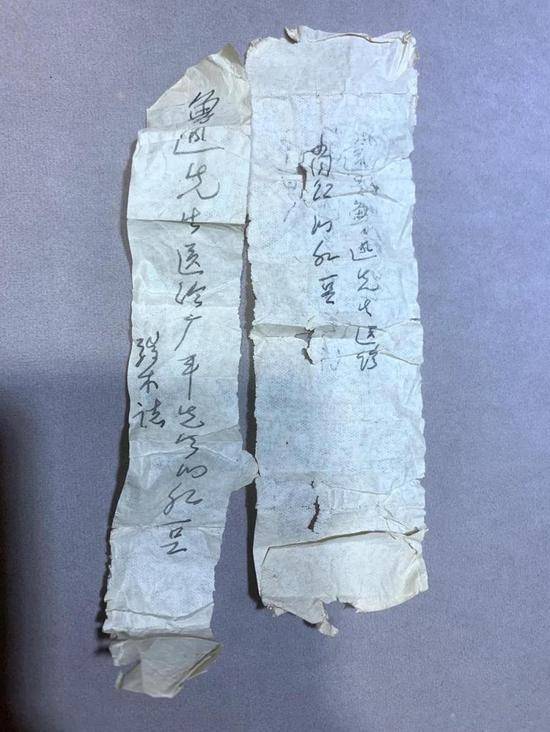 鲁迅先生送给
萧红的红豆
鲁迅先生送给广平先生的红豆
端木誌